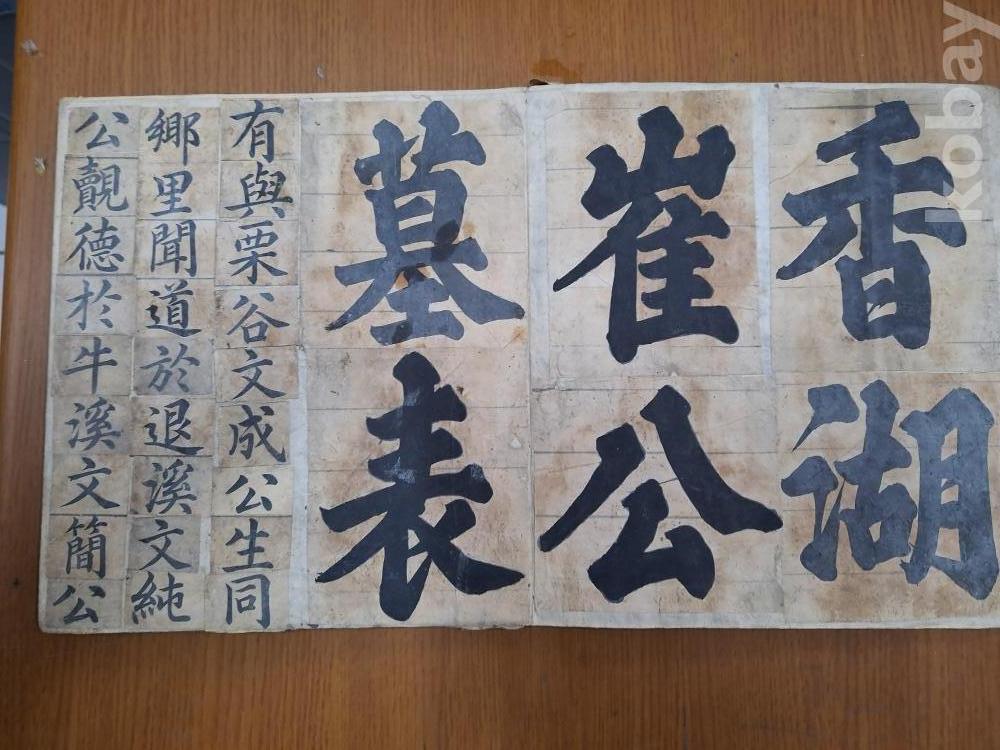 香湖
崔公
墓表
有與栗谷文成公生同
鄉里聞道於退溪文純
公覿德於牛溪文簡公
kobay